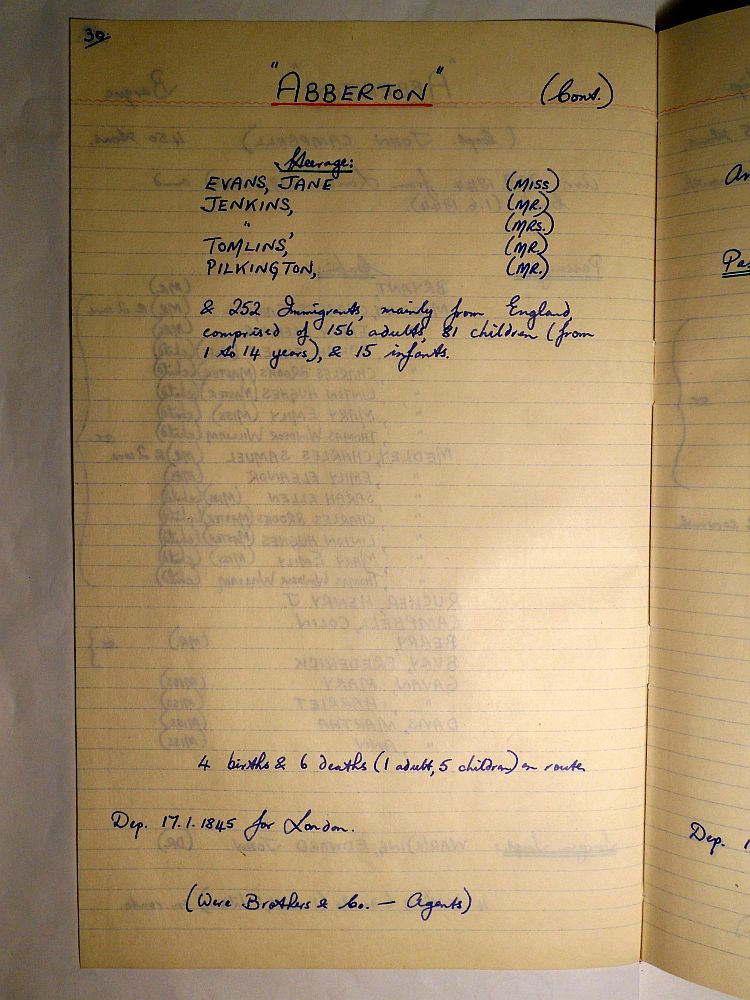 30.
"ABBERTON" (Cont.)
Steerage:
EVANS, JANE (MISS)
JENKINS, (MR.)
" (MRS.)
TOMLINS, (MR)
PILKINGTON, (MR.)
& 252 Immigrants, mainly from England,
comprised of 156 adults, 81 children (from
1 to 14 years), & 15 infants.
4 births & 6 deaths (1 adult, 5 children) en route
Dep. 17.1.1845 for London.
(Were Brothers & Co. — Agents)
Dep. 1